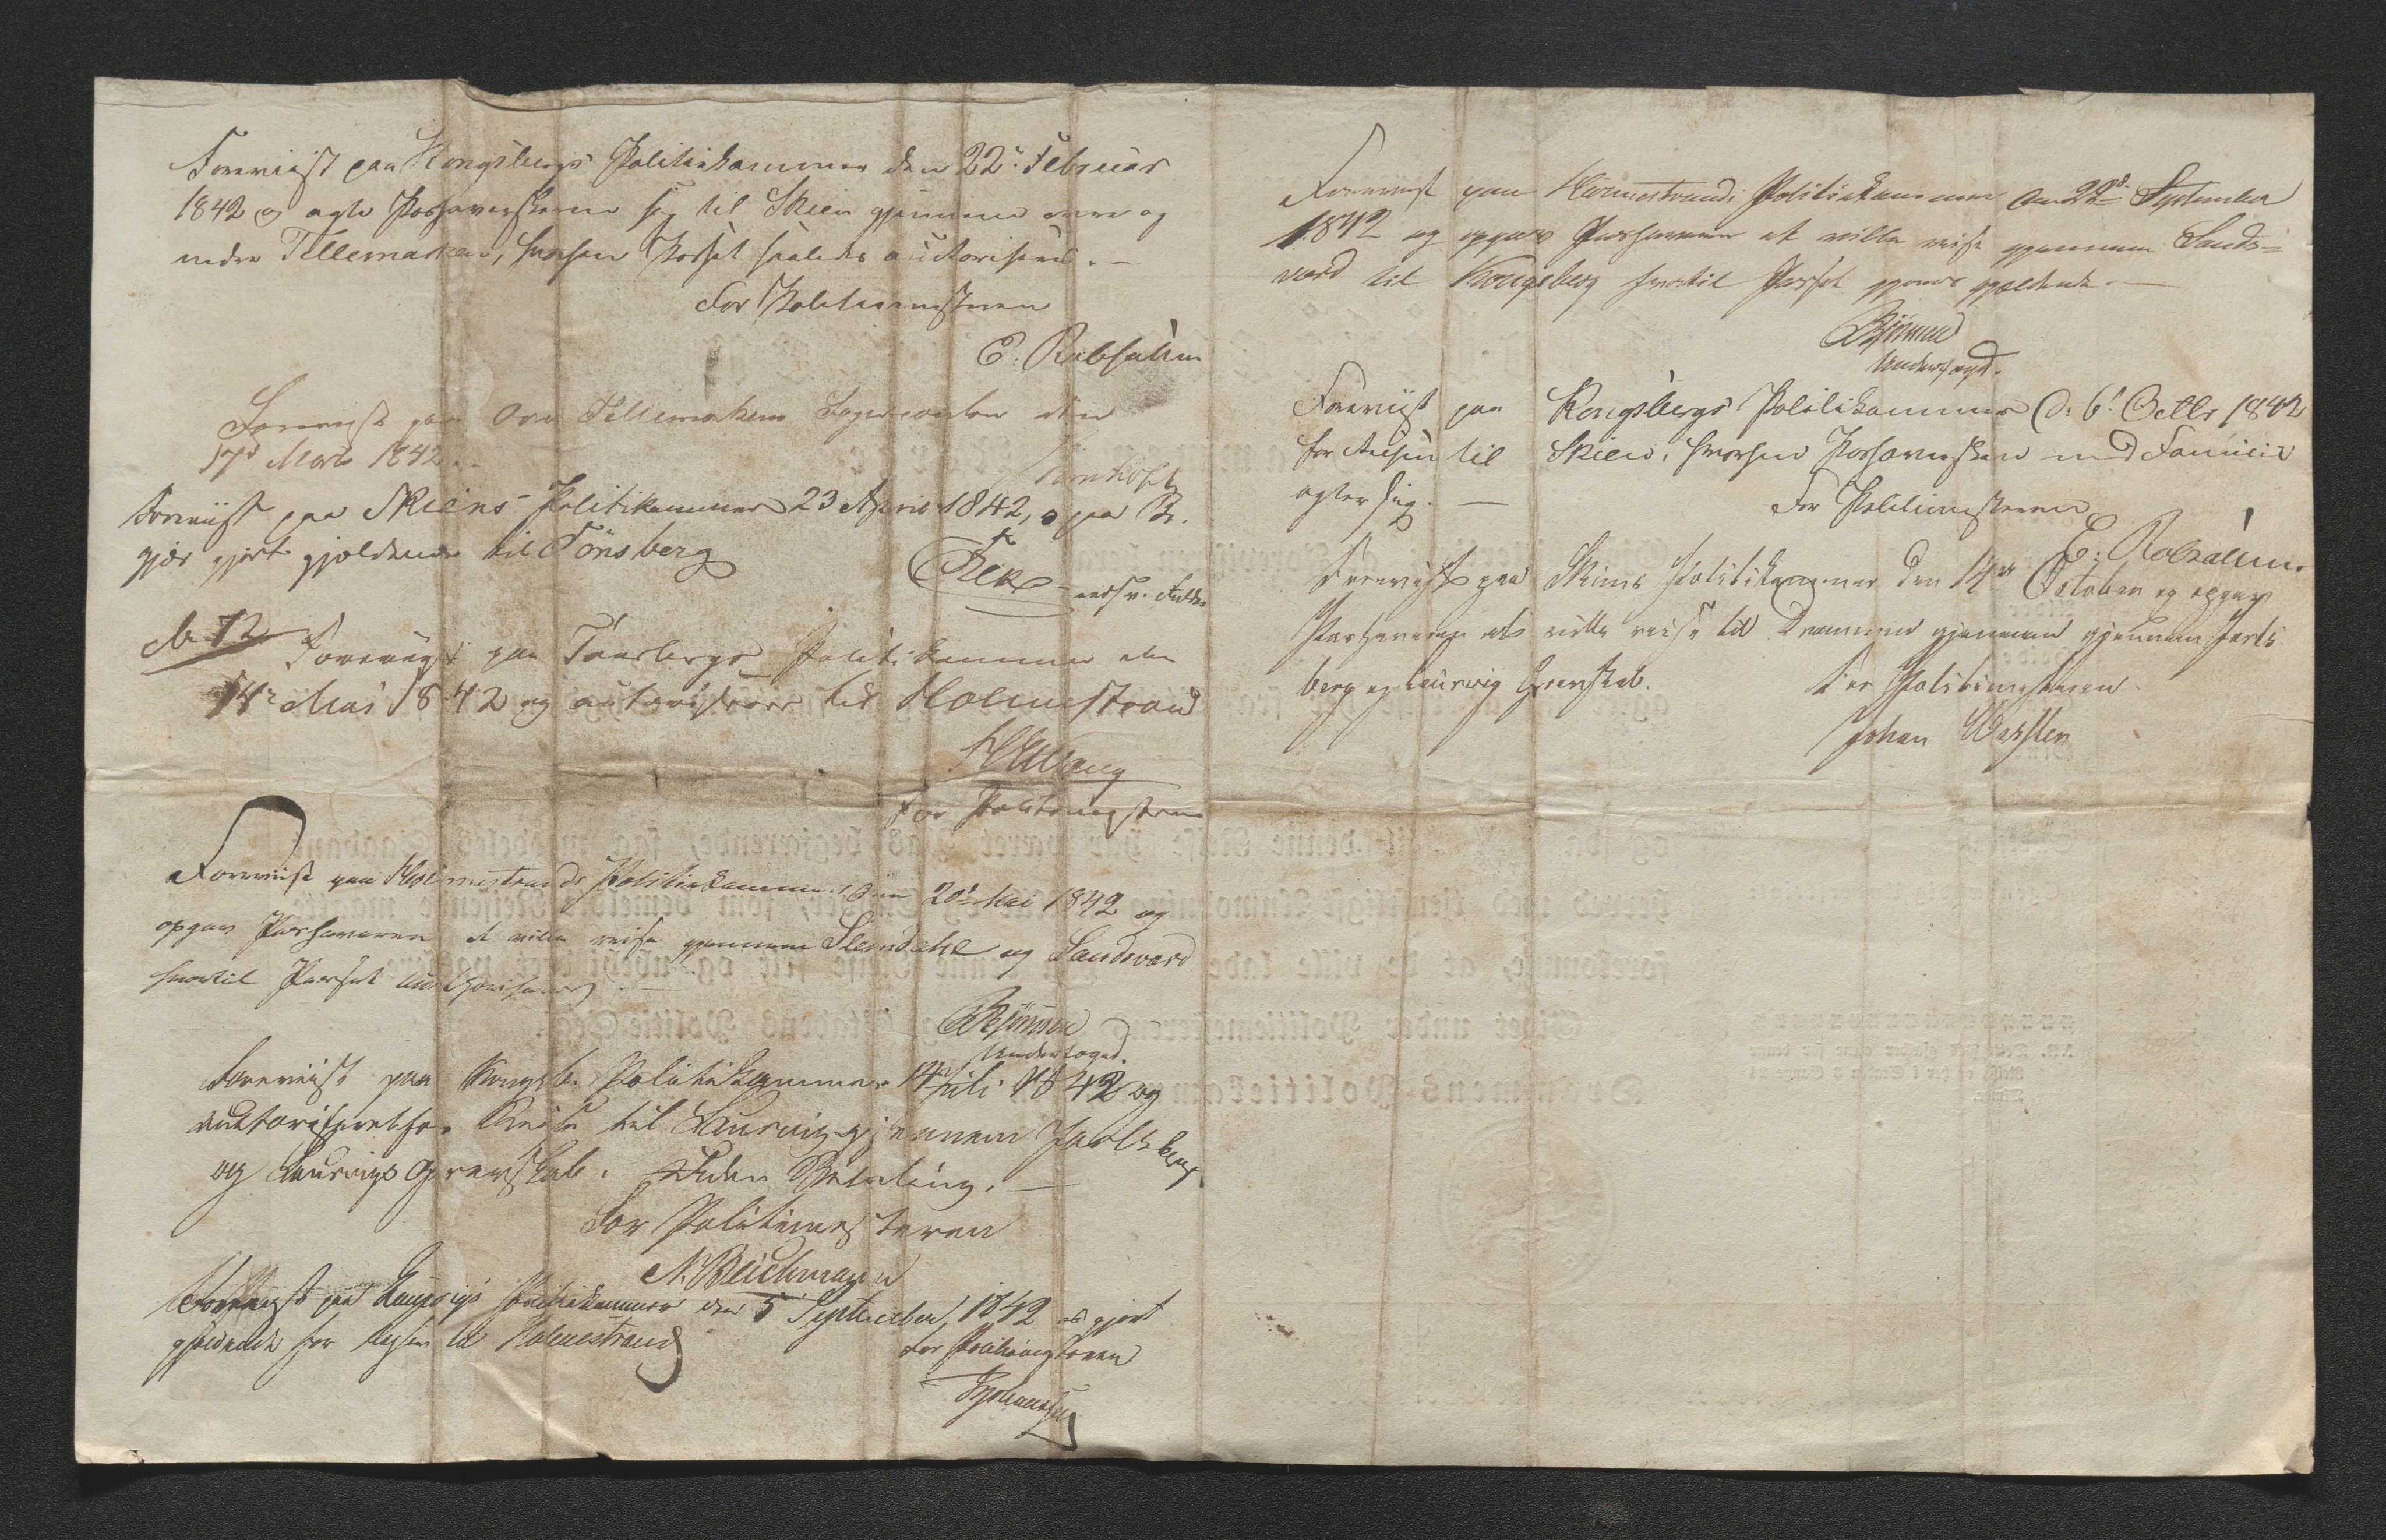 Foreviist paa Kongsbergs Politiekammer den 22de Februar
1842 og agte Pashaverskerne sig til Skien gjennem øvre og
nedre Tellemarken, hvorhen Passet saaledes auctoriseres. —
For Politiemesteren
E: Robsahm
Foreviist paa Øvre Tellemarkens Fogdecontor den
17d Marts 1842.
Foreviist paa Skiens Politikammer 23 April 1842, og paa
gjort gjældende til Tönsberg
No 72
Foreviist paa Tönsbergs Politikammer den
14de Mai 1842 og autoriseres til Holmestrand
For Politimesteren
Foreviist paa Holmestrands Politiekammer den 20de Mai 1842 og
opgav Pashaveren at ville reise gjennem og Sandsværd
hvortil Passet authoriseres
Bjönnes
Underfoged.
Foreviist paa Kongsb. Politikammer 14 Juli 1842 og
auktoriseret for Reise til Laurvig gjennem Jarlsberg
og Laurvigs Grevskab. Uden Betaling. —
For Politimesteren
N. Beichmann
Foreviist paa Laurvigs Politiekammer den 5 September 1842 og gjort
gjældende for Reisen til Holmestrand
For Politimesteren
Foreviist paa Holmestrands Politiekammer den 22de September
1842 og opgav Pashaveren at ville reise gjennem Sands-
værd til Kongsberg hvortil Passet gjøres gjældende. —
Bjönnes
Underfoged.
Foreviist paa Kongsbergs Politikammer d: 6te Octbr 1842
for Reisen til Skien, hvorhen Pashaversken med Familie
agter sig. —
For Politimesteren
E: Robsahm
Foreviist paa Skiens Politikammer den 14de October og opgav
Pashaveren at ville reise til Drammen gjennem gjennem Jarls-
berg og Laurvig Grevskab.
For Politimesteren
Johan